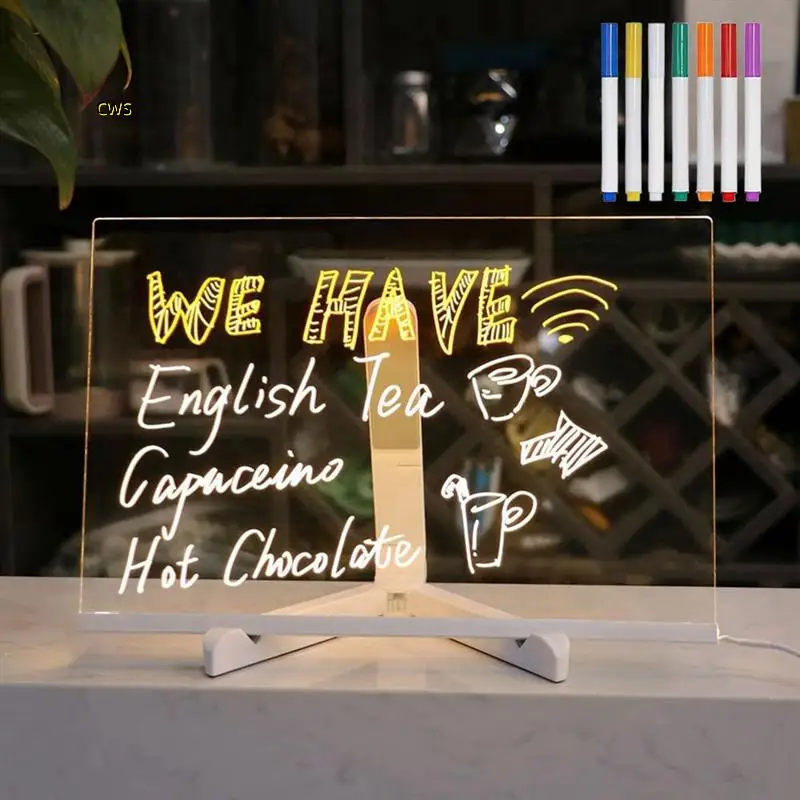 CWS
WE HAVE
English Tea
Capuceino
Hot Chocolate